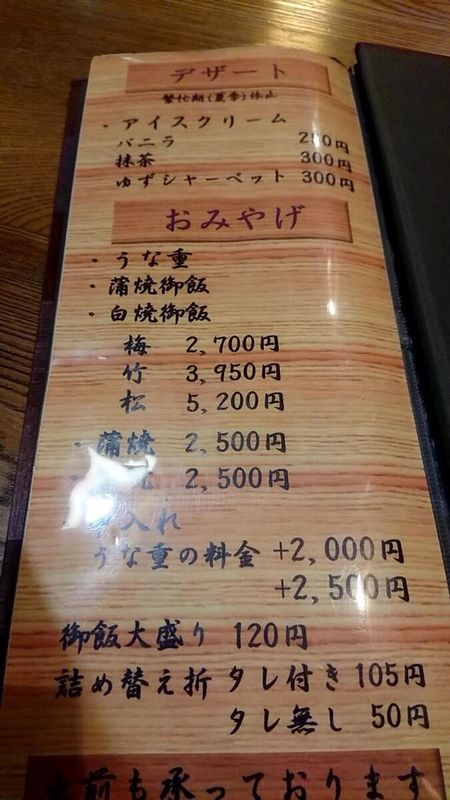 デザート
繁忙期(夏季)休止
・アイスクリーム
バニラ 250円
抹茶 300円
ゆずシャーベット 300円
おみやげ
・うな重
・蒲焼御飯
・白焼御飯
梅 2,700円
竹 3,950円
松 5,200円
・蒲焼 2,500円
・ 2,500円
入れ
うな重の料金 +2,000円
+2,500円
御飯大盛り 120円
詰め替え折 タレ付き 105円
タレ無し 50円
前も承っております